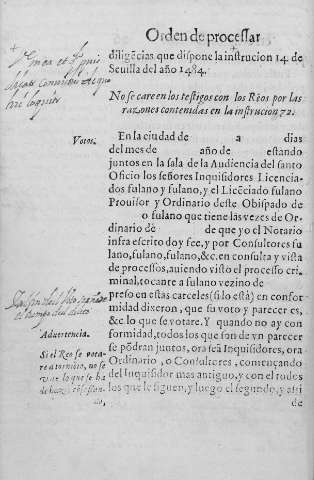 Orden de processar
diligẽcias que dispone la instrucion 14. de
Sevilla del año 1484.
No se careen los testigos con los Reos por las
razones contenidas en la instrucion 72.
Votos.
En la ciudad de a dias
del mes de año de estando
juntos en la sala de la Audiencia del santo
Oficio los señores Inquisidores Licencia-
dos fulano y fulano, y el Licẽciado fulano
Prouisor y Ordinario deste Obispado de
o fulano que tiene las vezes de Or-
dinario de de que yo el Notario
infra escrito doy fee, y por Consultores fu
lano, fulano, fulano, &c. en consulta y vista
de processos, auiendo visto el processo cri-
minal, tocante a fulano vezino de
preso en estas carceles (si lo està) en confor
midad dixeron, que su voto y parecer es,
&c lo que se votare. Y quando no ay con
formidad, todos los que son de vn parecer
se põdran juntos, ora seã Inquisidores, ora
Ordinario, o Consultores, començando
del Inquisidor mas antiguo, y con el todos
los que le siguen, y luego el segundo, y assi
de
Aduertencia.
Si el Reo se vota-
re a tormento, no se